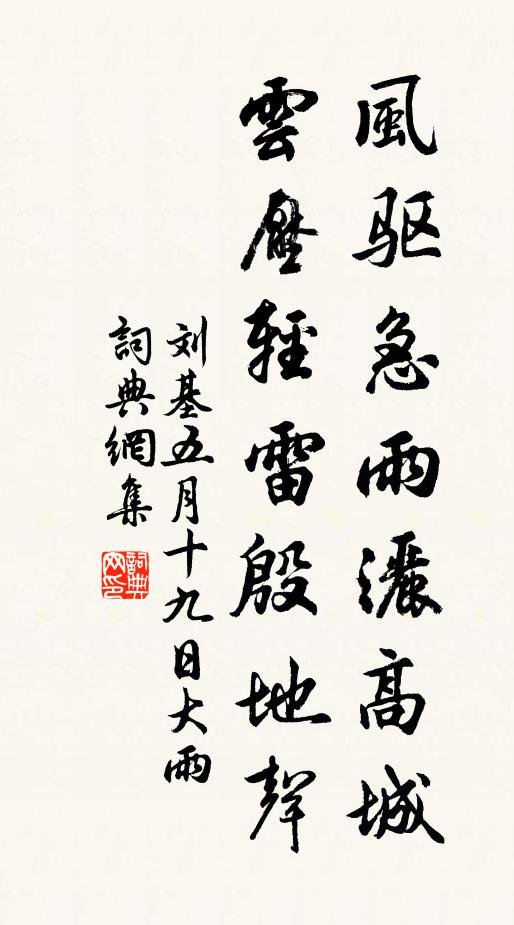 風驱急雨灑高城
雲壓輕雷殷地聲
刘基五月十九日大雨
詞典網集
詞典网印